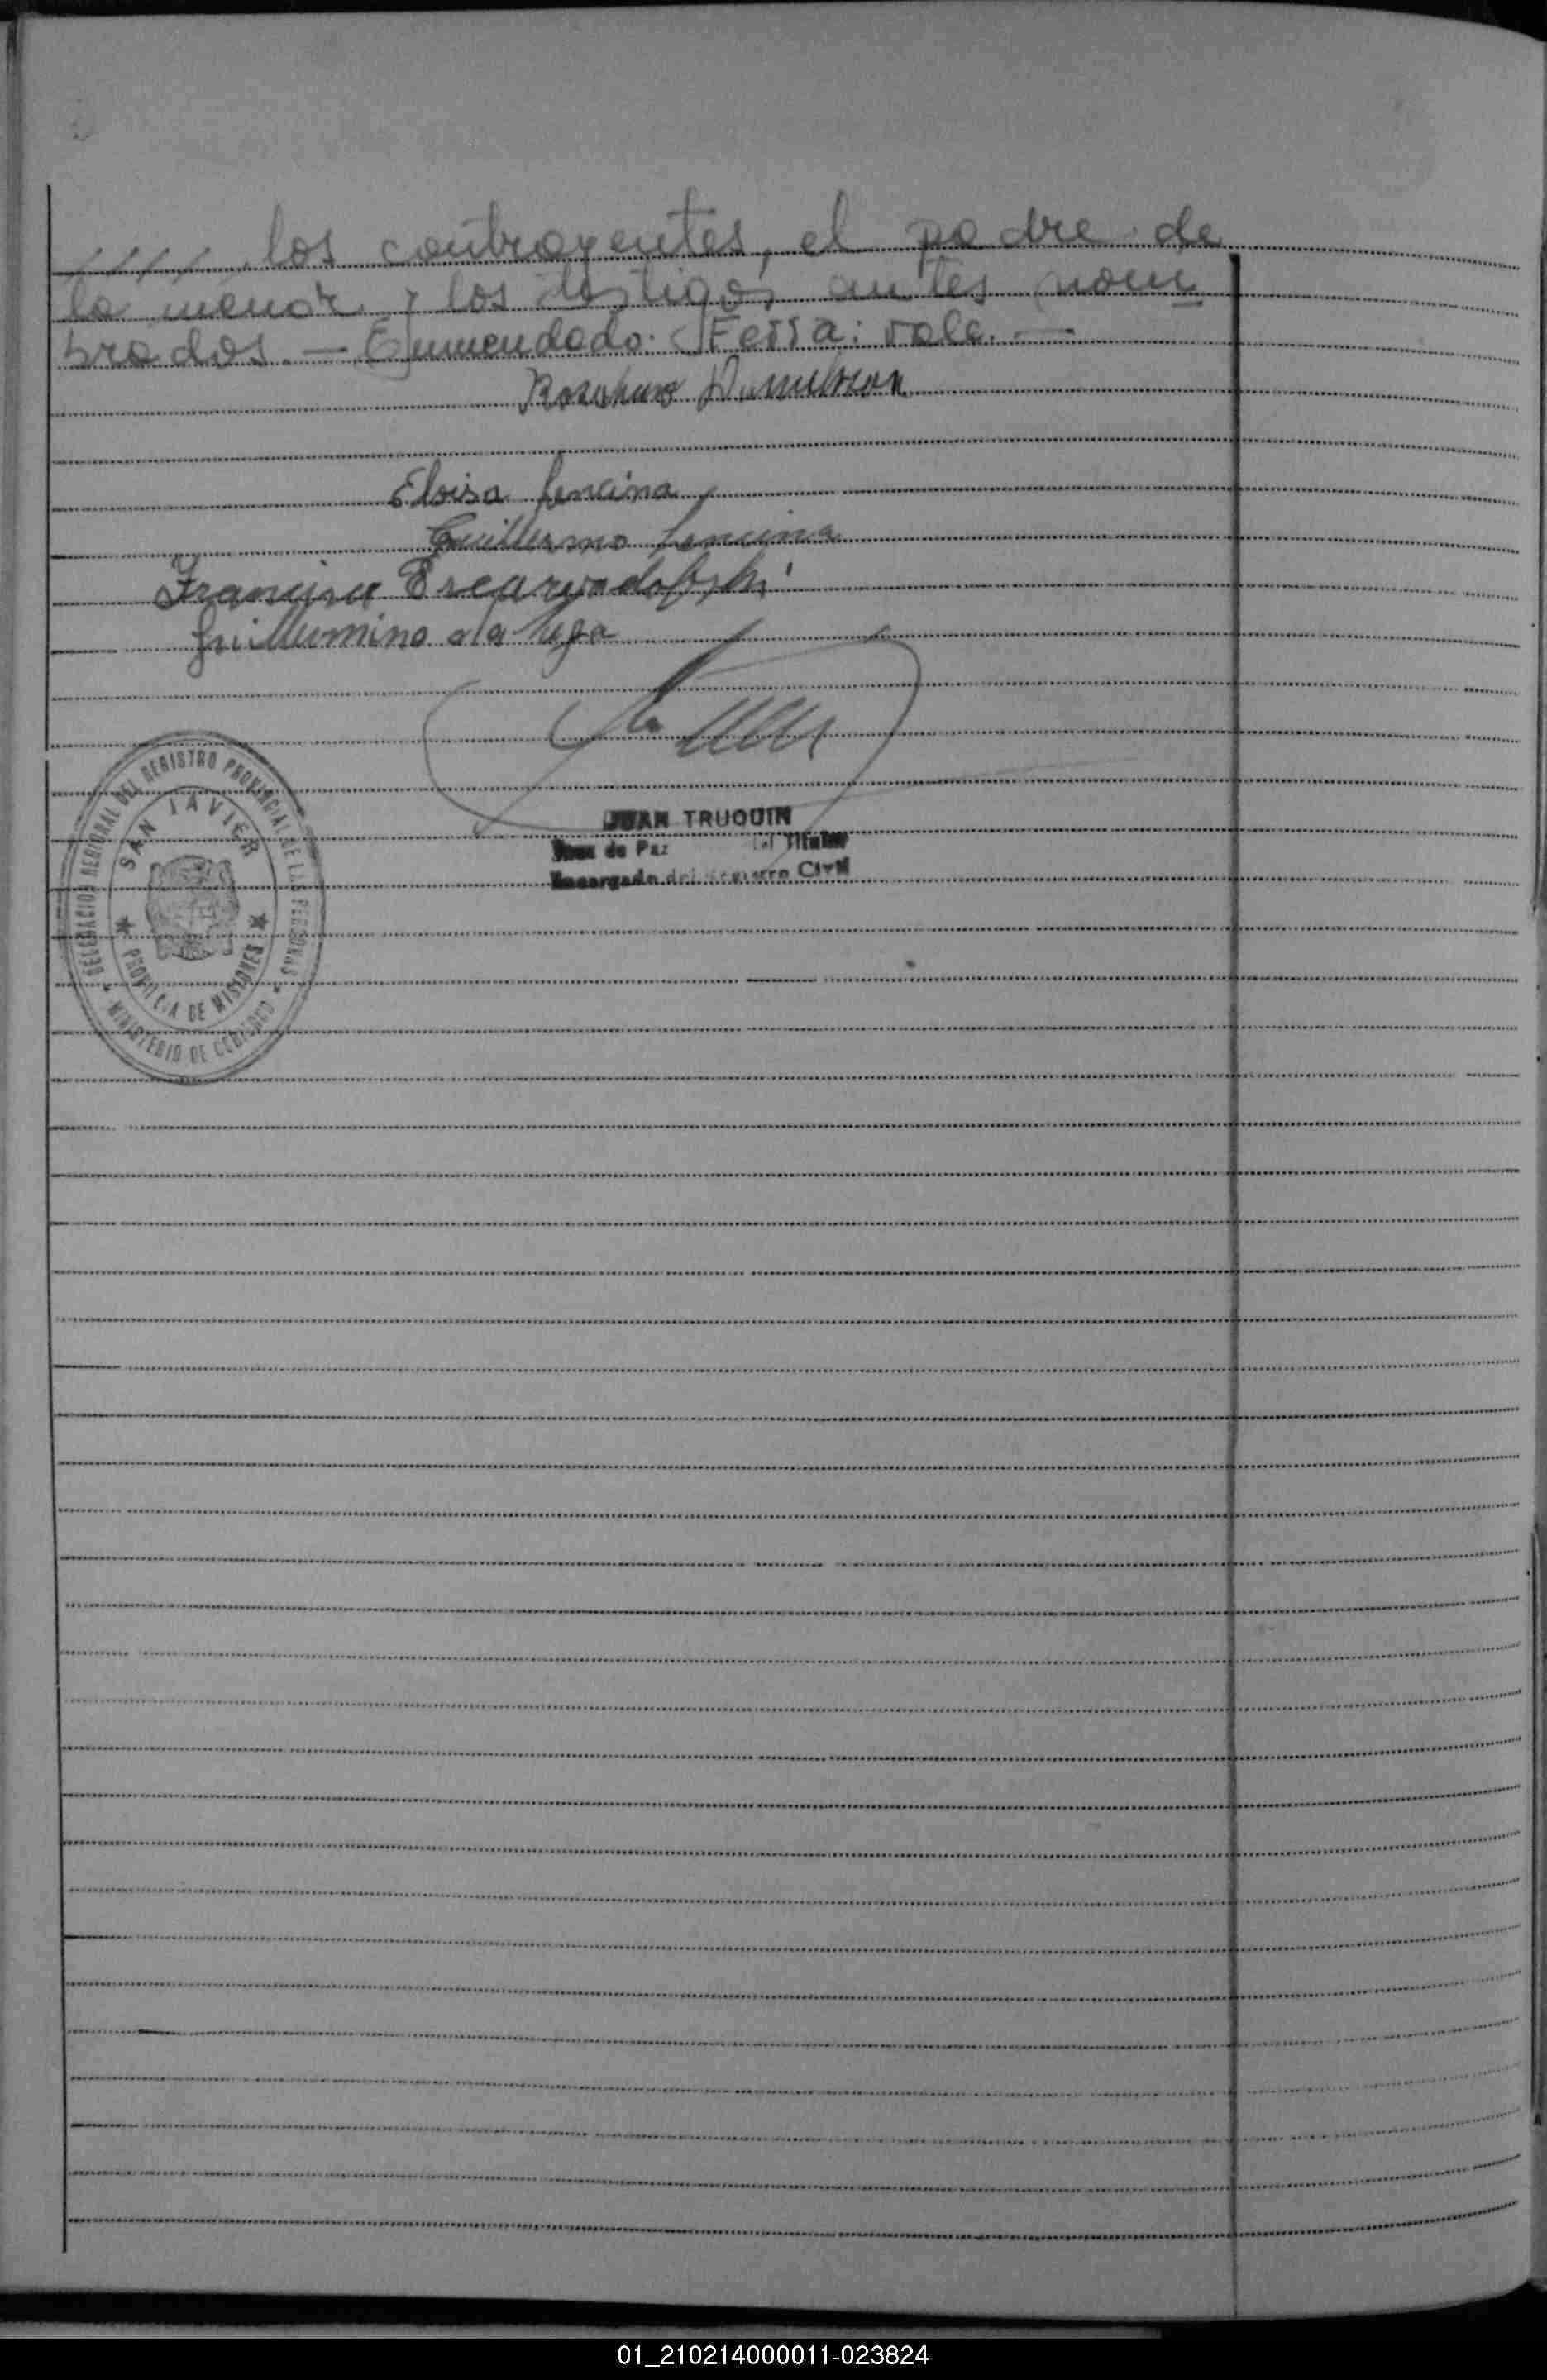 //// los contrayentes, el padre de
la menor y los testigos antes nom
brados. — Enmendado: Ferra: vale. —
Eloisa Lencina
Guillermo Lencina
Francisca
Guillermina da
JUAN TRUQUIN
Juez de Paz Titular
Encargado del Registro Civil
DELEGACION REGIONAL DEL REGISTRO PROVINCIAL DE LAS PERSONAS
SAN JAVIER
PROVINCIA DE MISIONES
MINISTERIO DE GOBIERNO
01_210214000011-023824